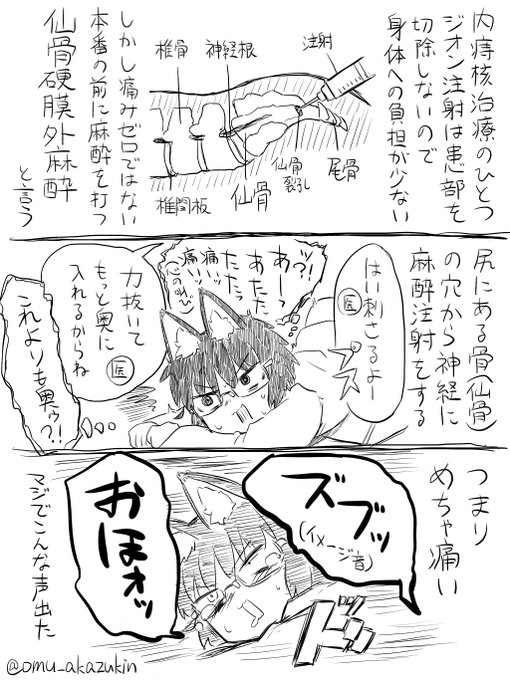 内痔核治療のひとつ
ジオン注射は患部を
切除しないので
身体への負担が少ない
注射
神経根
椎骨
尾骨
仙骨
裂孔
仙骨
椎間板
しかし痛みゼロではない
本番の前に麻酔を打つ
仙骨硬膜外麻酔
と言う
尻にある骨(仙骨)
の穴から神経に
麻酔注射をする
はい刺さるよー
医
プス
ッ?!
あーっ
あたた
痛ったぁ
痛い
力抜いて
もっと奥に
入れるからね
医
これよりも奥ゥ?!
つまり
めちゃ痛い
ズブッ
(イメージ音)
ドッ
おほォッ
マジでこんな声出た
@omu_akazukin